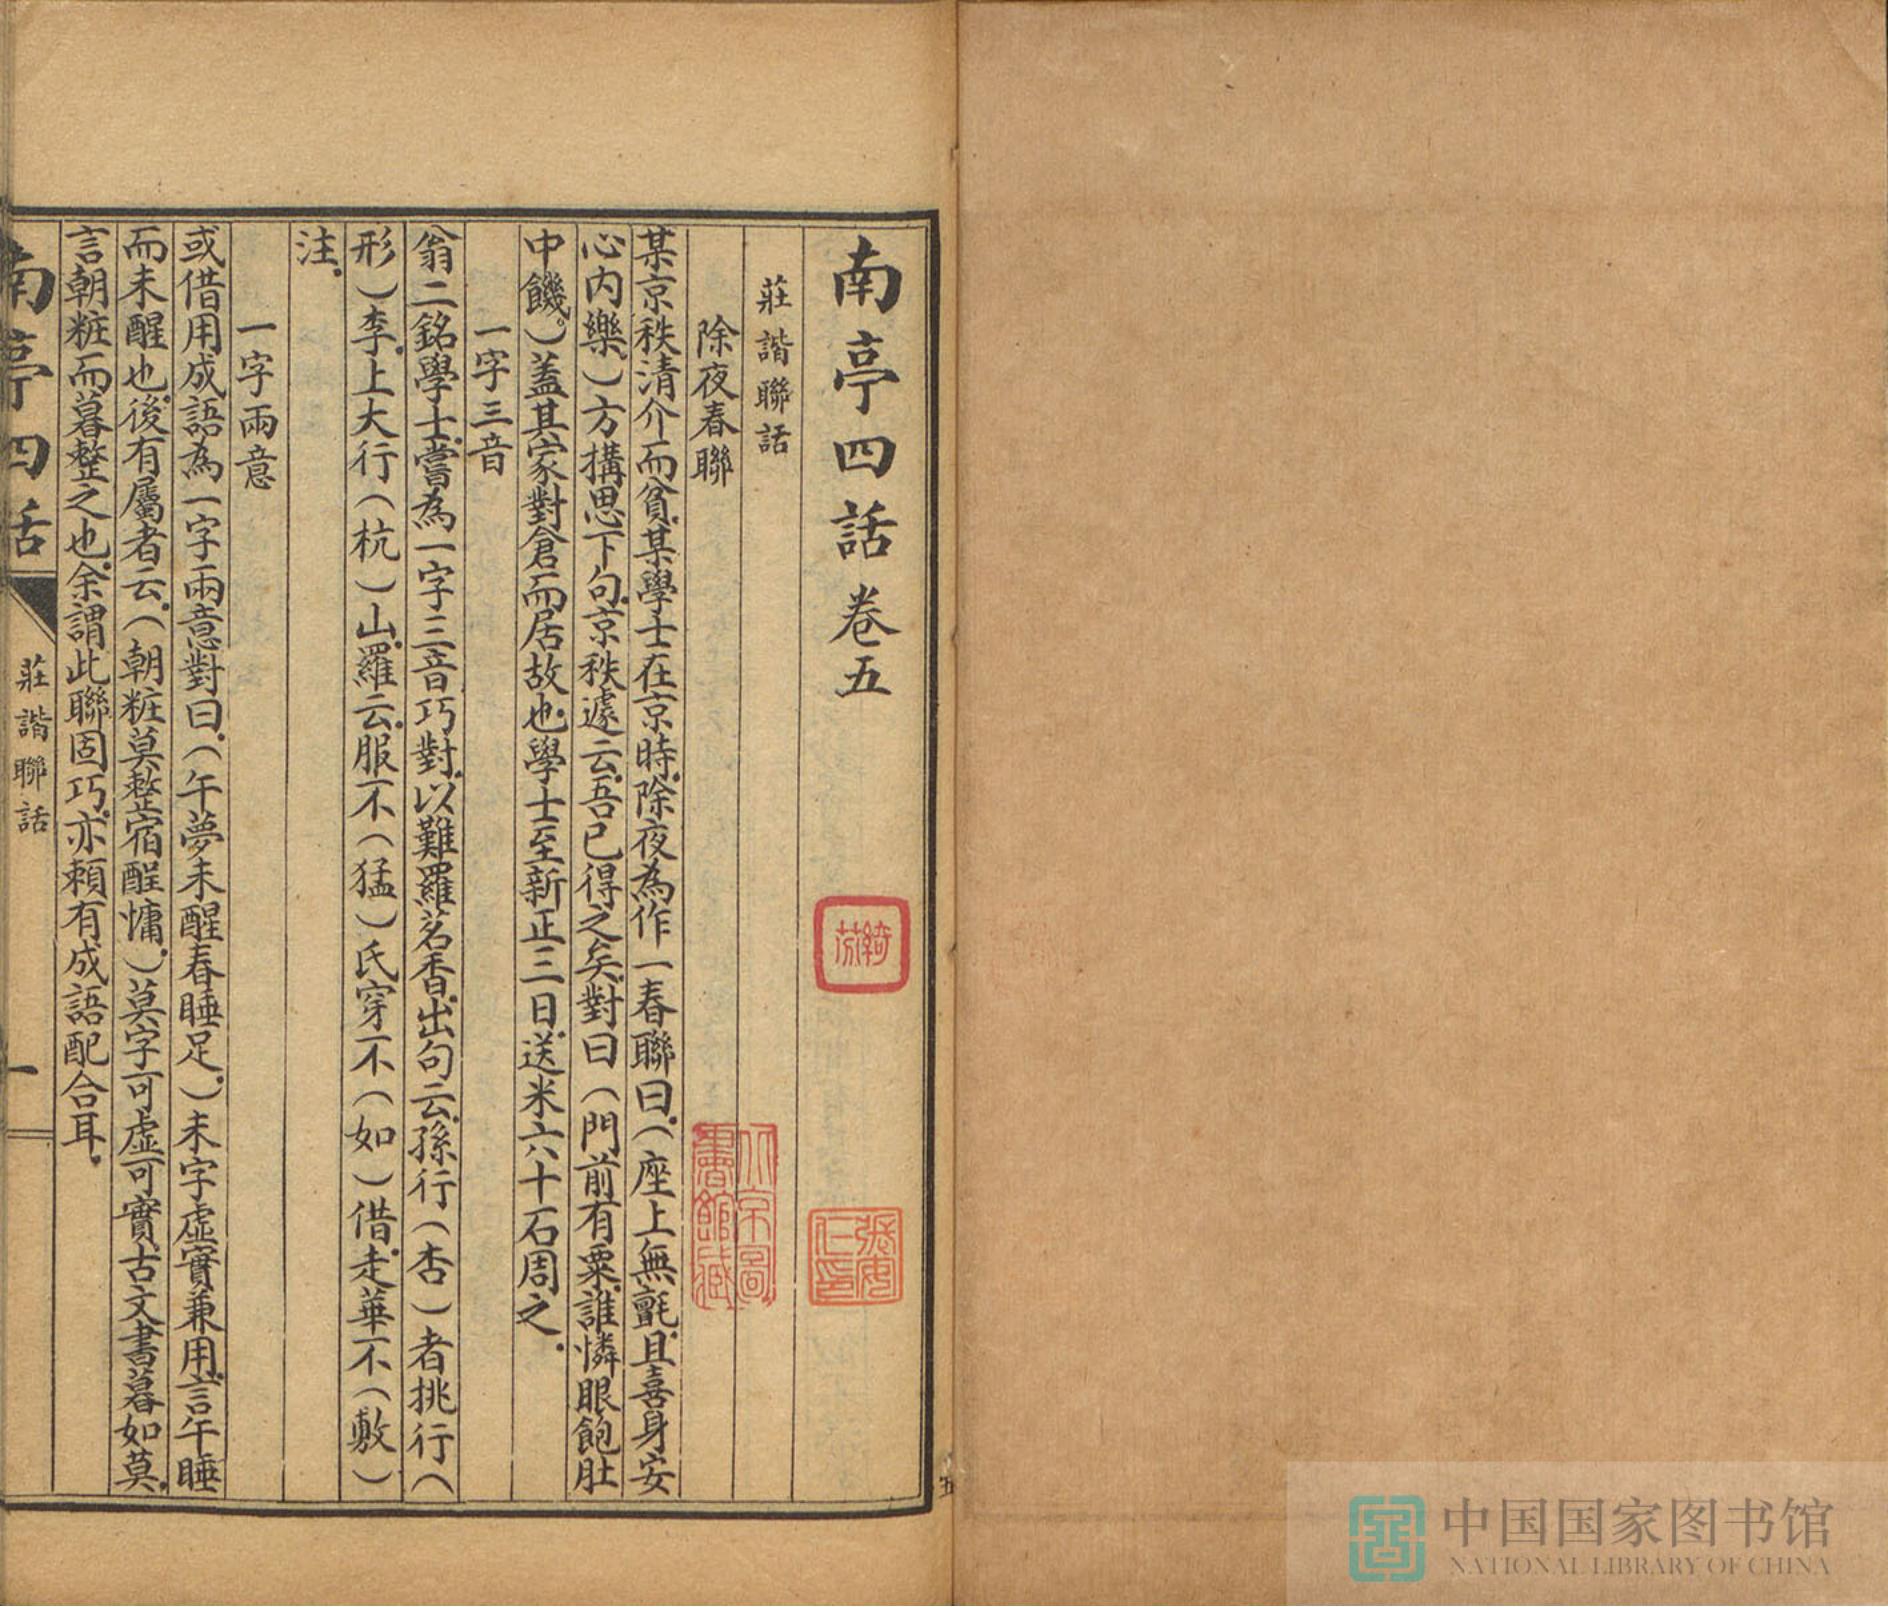 南亭四話卷五
莊諧聯話
除夜春聯
某京秩清介而貧.某學士在京時.除夜為作一春聯曰.(座上無氈.且喜身安
心內樂.)方搆思下句.京秩遽云.吾已得之矣.對曰(門前有粟.誰憐眼飽肚
中饑。)蓋其家對倉而居故也.學士至新正三日.送米六十石周之.
一字三音
翁二銘學士.嘗為一字三音巧對.以難羅茗香.出句云.孫行(杏)者挑行(
形)李.上大行(杭)山.羅云.服不(猛)氏穿不(如)借.走華不(敷)
注.
一字兩意
或借用成語為一字兩意對曰.(午夢未醒春睡足.)未字虛實兼用.言午睡
而未醒也.後有屬者云.(朝粧莫整宿酲慵.)莫字可虛可實.古文書暮如莫.
言朝粧而暮整之也.余謂此聯固巧.亦賴有成語配合耳.
南亭四話
莊諧聯話
一
綺
張
仁印
京
圖
書館藏
五
中国国家图书馆
NATIONAL LIBRARY OF CHINA